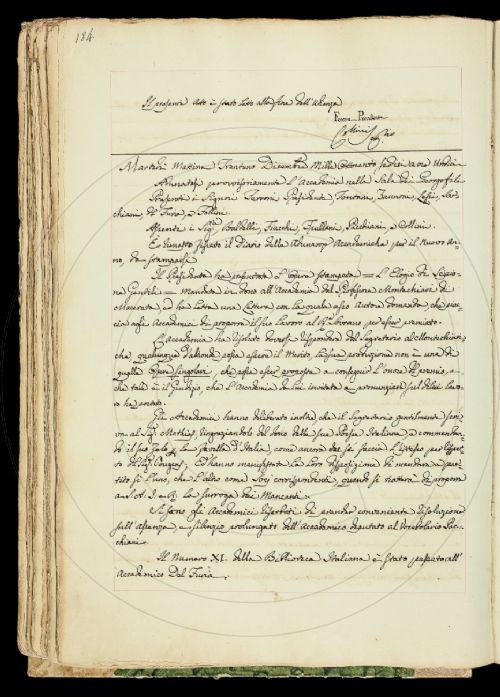 184.
Il presente Atto è stato letto alla fine dell'Adunanza
Ferroni Presidente
Collini Seg.rio
Martedì Mattina Trentuno Dicembre Mille Ottocento sedici a ore Undici
Adunatasi provvisoriamente l'Accademia nella Sala dei Georgofili
Presenti i Signori Ferroni Presidente, Fontani, Zannoni, Lessi, Sarchiani,
Del Furia, e Collini.
Assenti i Sig.ri Baldelli, Fiacchi,
È rimasto fissato il Diario delle Adunanze Accademiche per il Nuovo Anno,
da stamparsi.
Il Presidente ha presentato l'Opera stampata = L'Elogio di Scipione
Gentili = mandata in dono all'Accademia dal Professore Montechiari di
Macerata, ed ha letta una Lettera con la quale esso Autore domanda, che piaccia
agli Accademici di proporre il suo Lavoro al per esser premiato.
L'Accademia ha risoluto doversi rispondere dal Segretario al Montechiari,
che qualunque d'altronde possa essere il Merito, la sua produzione non è una di
quelle Opere singolari, che possa esser proposta a conseguir l'onore del premio, e
che tale è il giudizio, che l'Accademia da lui invitata a pronunziare sul di lui lavoro
ha emesso.
Gli Accademici hanno deliberato inoltre che il Segretario gentilmente scriva
al Sig. Mathias ringraziandolo del dono delle sue Poesie Italiane, e commendando
il suo zelo la favella d'Italia, come ancora che si faccia l'istesso per rispetto
al Sig. ed hanno manifestata la loro disposizione di mandare a partito
sì l'uno, che l'altro come Socj corrispondenti, quando si tratterà di proporre
la surroga dei Mancanti.
Si sono gli Accademici riserbati di prender conveniente risoluzione
sull'assenza, e silenzio prolungato dell'Accademico deputato al Vocabolario Sarchiani.
Il Numero XI. della Biblioteca Italiana è stato passato all'
Accademico Del Furia.